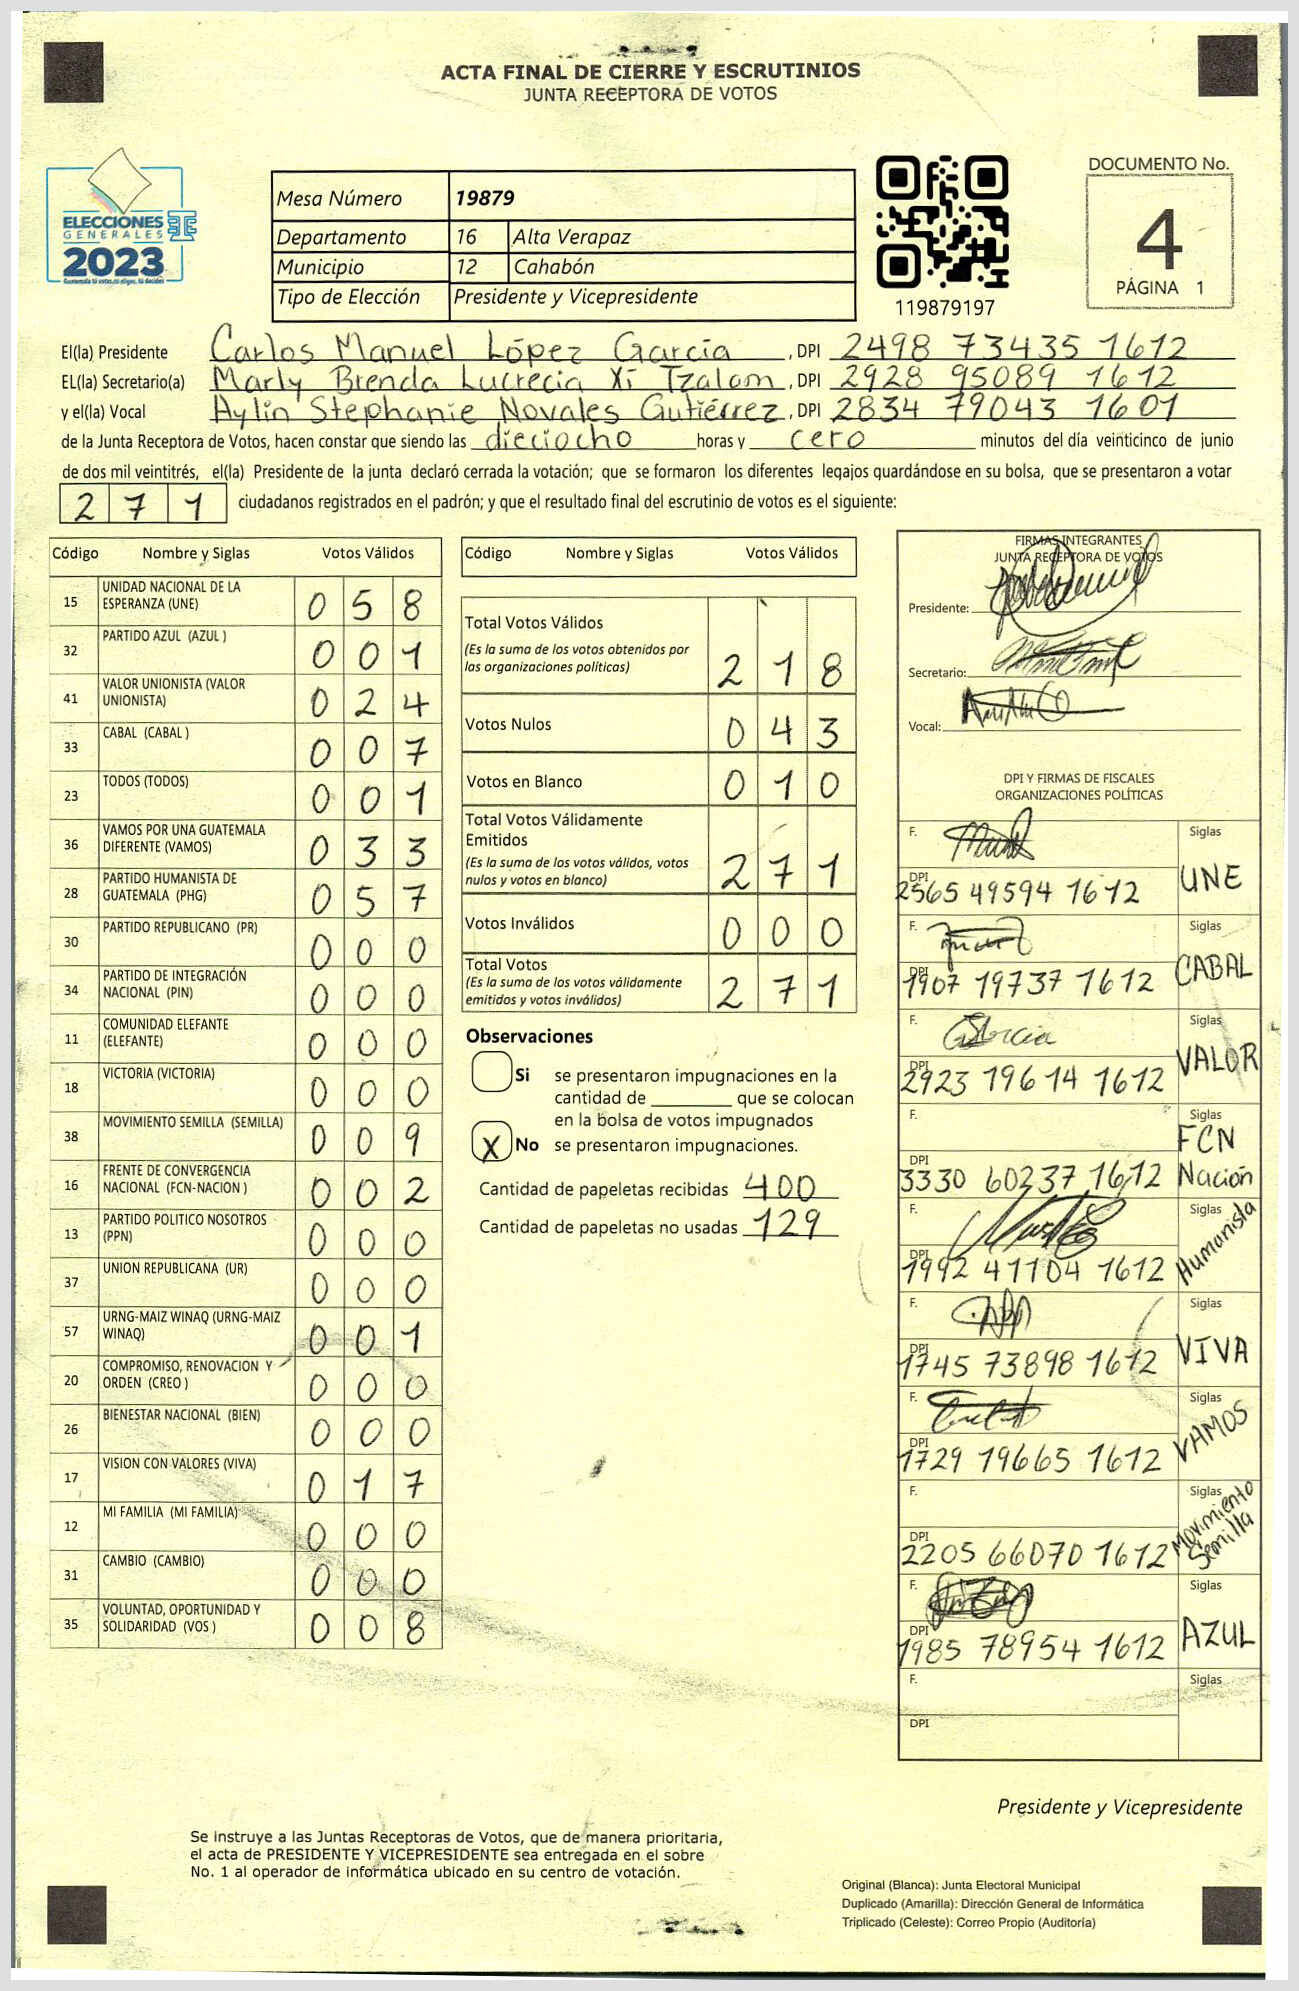 ACTA FINAL DE CIERRE Y ESCRUTINIOS
JUNTA RECEPTORA DE VOTOS
ELECCIONES
GENERALES
2023
Mesa Número 19879
Departamento 16 Alta Verapaz
Municipio 12 Cahabón
Tipo de Elección Presidente y Vicepresidente
119879197
DOCUMENTO No.
4
PÁGINA 1
El(la) Presidente Carlos Manuel López García, DPI 2498 73435 1612
EL(la) Secretario(a) Marly Brenda Lucrecia Xí Tzalam, DPI 2928 95089 1612
y el(la) Vocal Aylin Stephanie Novales Gutiérrez, DPI 2834 79043 1601
de la Junta Receptora de Votos, hacen constar que siendo las dieciocho horas y cero minutos del día veinticinco de junio
de dos mil veintitrés, el(la) Presidente de la junta declaró cerrada la votación; que se formaron los diferentes legajos quardándose en su bolsa, que se presentaron a votar
271 ciudadanos registrados en el padrón; y que el resultado final del escrutinio de votos es el siguiente:
Código Nombre y Siglas Votos Válidos
15 UNIDAD NACIONAL DE LA ESPERANZA (UNE) 058
32 PARTIDO AZUL (AZUL ) 001
41 VALOR UNIONISTA (VALOR UNIONISTA) 024
33 CABAL (CABAL ) 007
23 TODOS (TODOS) 001
36 VAMOS POR UNA GUATEMALA DIFERENTE (VAMOS) 033
28 PARTIDO HUMANISTA DE GUATEMALA (PHG) 057
30 PARTIDO REPUBLICANO (PR) 000
34 PARTIDO DE INTEGRACIÓN NACIONAL (PIN) 000
11 COMUNIDAD ELEFANTE (ELEFANTE) 000
18 VICTORIA (VICTORIA) 000
38 MOVIMIENTO SEMILLA (SEMILLA) 009
16 FRENTE DE CONVERGENCIA NACIONAL (FCN-NACION ) 002
13 PARTIDO POLITICO NOSOTROS (PPN) 000
37 UNION REPUBLICANA (UR) 000
57 URNG-MAIZ WINAQ (URNG-MAIZ WINAQ) 001
20 COMPROMISO, RENOVACION Y ORDEN (CREO ) 000
26 BIENESTAR NACIONAL (BIEN) 000
17 VISION CON VALORES (VIVA) 017
12 MI FAMILIA (MI FAMILIA) 000
31 CAMBIO (CAMBIO) 000
35 VOLUNTAD, OPORTUNIDAD Y SOLIDARIDAD (VOS ) 008
Código Nombre y Siglas Votos Válidos
Total Votos Válidos 218
(Es la suma de los votos obtenidos por
las organizaciones políticas)
Votos Nulos 043
Votos en Blanco 010
Total Votos Válidamente
Emitidos 271
(Es la suma de los votos válidos, votos
nulos y votos en blanco)
Votos Inválidos 000
Total Votos 271
(Es la suma de los votos válidamente
emitidos y votos inválidos)
Observaciones
Si se presentaron impugnaciones en la
cantidad de ________ que se colocan
en la bolsa de votos impugnados
X No se presentaron impugnaciones.
Cantidad de papeletas recibidas 400
Cantidad de papeletas no usadas 129
FIRMAS INTEGRANTES
JUNTA RECEPTORA DE VOTOS
Presidente:
Secretario:
Vocal:
DPI Y FIRMAS DE FISCALES
ORGANIZACIONES POLÍTICAS
F. Siglas
DPI 2565 49594 1612 UNE
F. Siglas
DPI 1907 19737 1612 CABAL
F. Siglas
DPI 2923 19614 1612 VALOR
F. Siglas
DPI 3330 60237 1612 FCN Nación
F. Siglas
DPI 1992 41104 1612 Humanista
F. Siglas
DPI 1745 73898 1612 VIVA
F. Siglas
DPI 1729 19665 1612 VAMOS
F. Siglas
DPI 2205 66070 1612 Movimiento Semilla
F. Siglas
DPI 1985 78954 1612 AZUL
F. Siglas
DPI
Presidente y Vicepresidente
Se instruye a las Juntas Receptoras de Votos, que de manera prioritaria,
el acta de PRESIDENTE Y VICEPRESIDENTE sea entregada en el sobre
No. 1 al operador de informática ubicado en su centro de votación.
Original (Blanca): Junta Electoral Municipal
Duplicado (Amarilla): Dirección General de Informática
Triplicado (Celeste): Correo Propio (Auditoría)